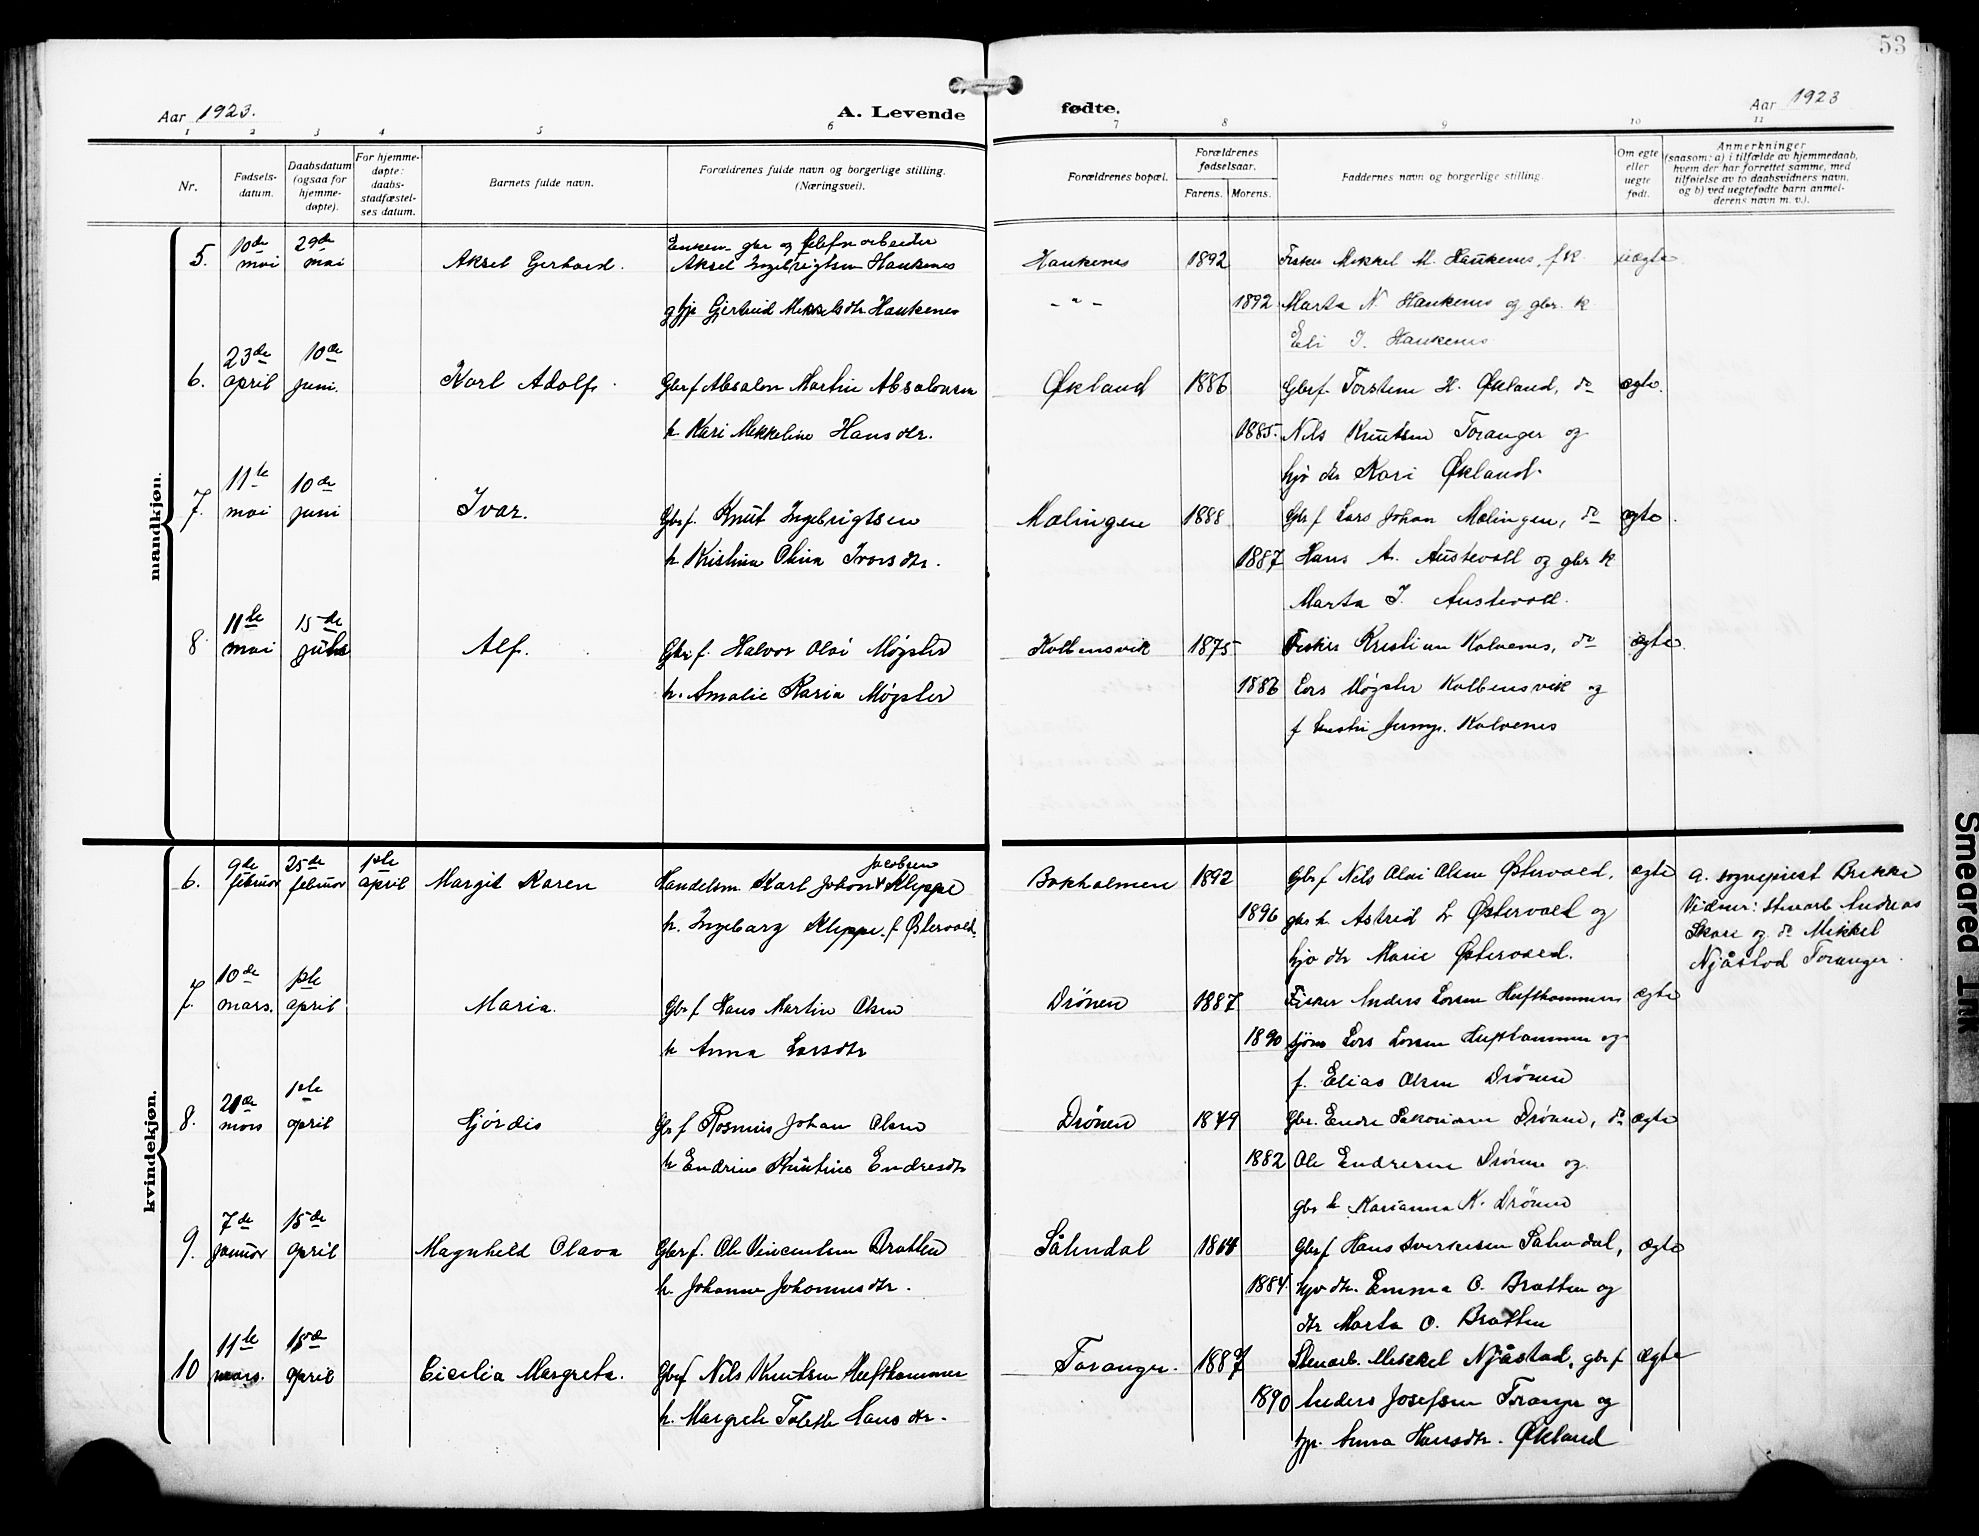 53
Aar 1923.
A. Levende
fødte.
Aar 1923
1 2 3 4 5 6 7 8 9 10 11
Nr.
Fødsels-
datum.
Daabsdatum
(ogsaa for
hjemme-
døpte).
For hjemme-
døpte:
daabs-
stadfæstel-
ses datum.
Barnets fulde navn.
Forældrenes fulde navn og borgerlige stilling.
(Næringsvei).
Forældrenes bopæl.
Forældrenes
fødselsaar.
Farens. Morens.
Faddernes navn og borgerlige stilling.
Om egte
eller
uegte
født.
Anmerkninger
(saasom: a) i tilfælde av hjemmedaab,
hvem der har forrettet samme, med
tilføielse av to daabsvidners navn,
og b) ved uegtefødte barn anmel-
derens navn m. v.).
mandkjøn.
5. 10de mai 29de mai Aksel Gerhard.
gbr og telefonarbeider
Aksel Ingebrigtsen Haukenes Haukenes 1892 Fisker Mikkel M. Haukenes, fk. uægte
Gjertrud Mikkelsdtr Haukenes - " - 1892 Marta N. Haukenes og gbr. k
Eli I. Haukenes
6. 23de april 10de juni. Karl Adolf.
Gbrf Absalon Martin Absalonsen Økland 1886 Gbrf. Torstein H. Økland, do ægte.
h. Kari Mikkeline Hansdtr. 1885. Nils Knutsen Toranger og
hjv dtr Kari Økland.
7. 11te mai 10de juni Ivar.
Gbrf. Knut Ingebrigtsen Mølingen 1888 Gbrf Lars Johan Mølingen, do ægte.
h Kristina Olina Ivarsdtr. 1887 Hans A. Austevoll og gbr k
Marta I. Austevoll.
8. 11te mai 15de Alf.
Gbrf. Halvor Olai Møgster Kolbensvik 1875 Fisker Kristian Kalvenes, do ægte.
h. Amalie Karia Møgster 1886 Lars Møgster Kolbensvik og
f Kalvenes
kvindekjøn.
6. 9de februar 25de februar 1ste april Margit Karen
Jacobsen
Handelsm Karl Johan Kleppe Bakholmen 1892 Gbrf Nils Olai Olsen Østervold, ægte a. sogneprest Brekke
h. Ingeborg Kleppe f Østervold. 1896 gbr h Astrid L Østervold og Vidner: stenarb Andreas
hjv dtr Marie Østervold. Skare og do Mikkel
Njåstad Toranger.
7. 10de mars. 1ste april Maria.
Gbrf Hans Martin Olsen Drönen 1887 Fisker Anders Larsen Hufthammer ægte
h Anna Larsdtr 1890 Lars Larsen Hufthammer og
f. Elias Olsen Drönen
8. 21de mars 1ste april Hjördis
Gbrf Rasmus Johan Olsen Drönen 1849 Gbr. Endre Sakariasen Drönen, do ægte
h Endrine Kristine Endresdtr 1882 Ole Endresen Drönen og
gbr h Karianna K. Drönen
9. 7de januar 15de april Magnhild Olava
Gbrf. Ole Vincentsen Bratten Sålendal 1864 Gbrf Hans Sverkesen Sålendal, ægte
h. Johanne Johannesdtr. 1884. hjv dtr. Emma O. Bratten og
dtr Marta O. Bratten
10 11te mars. 15de april Cicilia Margreta.
Gbrf Nils Knutsen Hufthammer Toranger. 1887 Stenarb. Mikkel Njåstad, gbrf ægte
h. Margrete Tolette Hansdtr. 1890 Anders Josefsen Toranger og
Anna Hansdtr. Økland
Smeared Ink